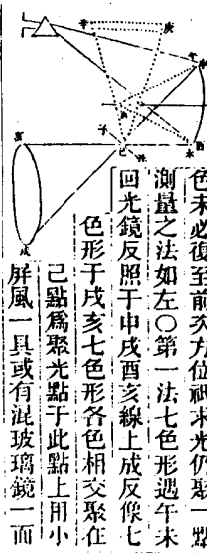 色未必復至前次方位視求光仍聚一點
測量之法如左〇第一法七色形遇午未
回光鏡反照于申戌酉亥線上成反像七
色形于戌亥七色形各色相交聚在
己點爲聚光點于此點上用小
屏風一具或有混玻璃鏡一面
辛
庚
午
申
酉
未
子
己
丑
亥
戌